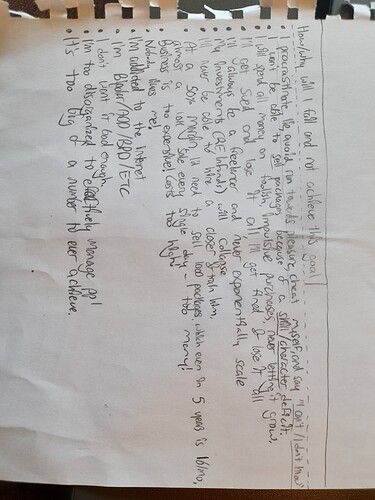 How/why will I fail and not achieve this goal!
• procrastinate, life, avoid, run towards pleasure, cheat myself, and say "I can't / I don't know
• I won't be able to sell packages because of a skill/character deficit.
• I will spend all money on foolish, impulsive purchases, never letting it grow,
• I'll get sued and lose it all I'll get fined & lose it all
• I'll always be a freelancer and never exponentially scale
• My investments (RE will collapse
• I'll never be able to hire a closer & train him,
• At a 50% margin, I'd need to sell 1000 packages which even in 5 years is 16/mo,
almost a sale every single day - too many!
• Business is too expensive! Costs too high!
• Nobody likes me!
• I'm addicted to the Internet
• I'm Bipolar/ADD/BPD ETC
• I don't want it bad enough,
• I'm too disorganized to effectively manage ppl
• It's too big of a number to ever achieve.